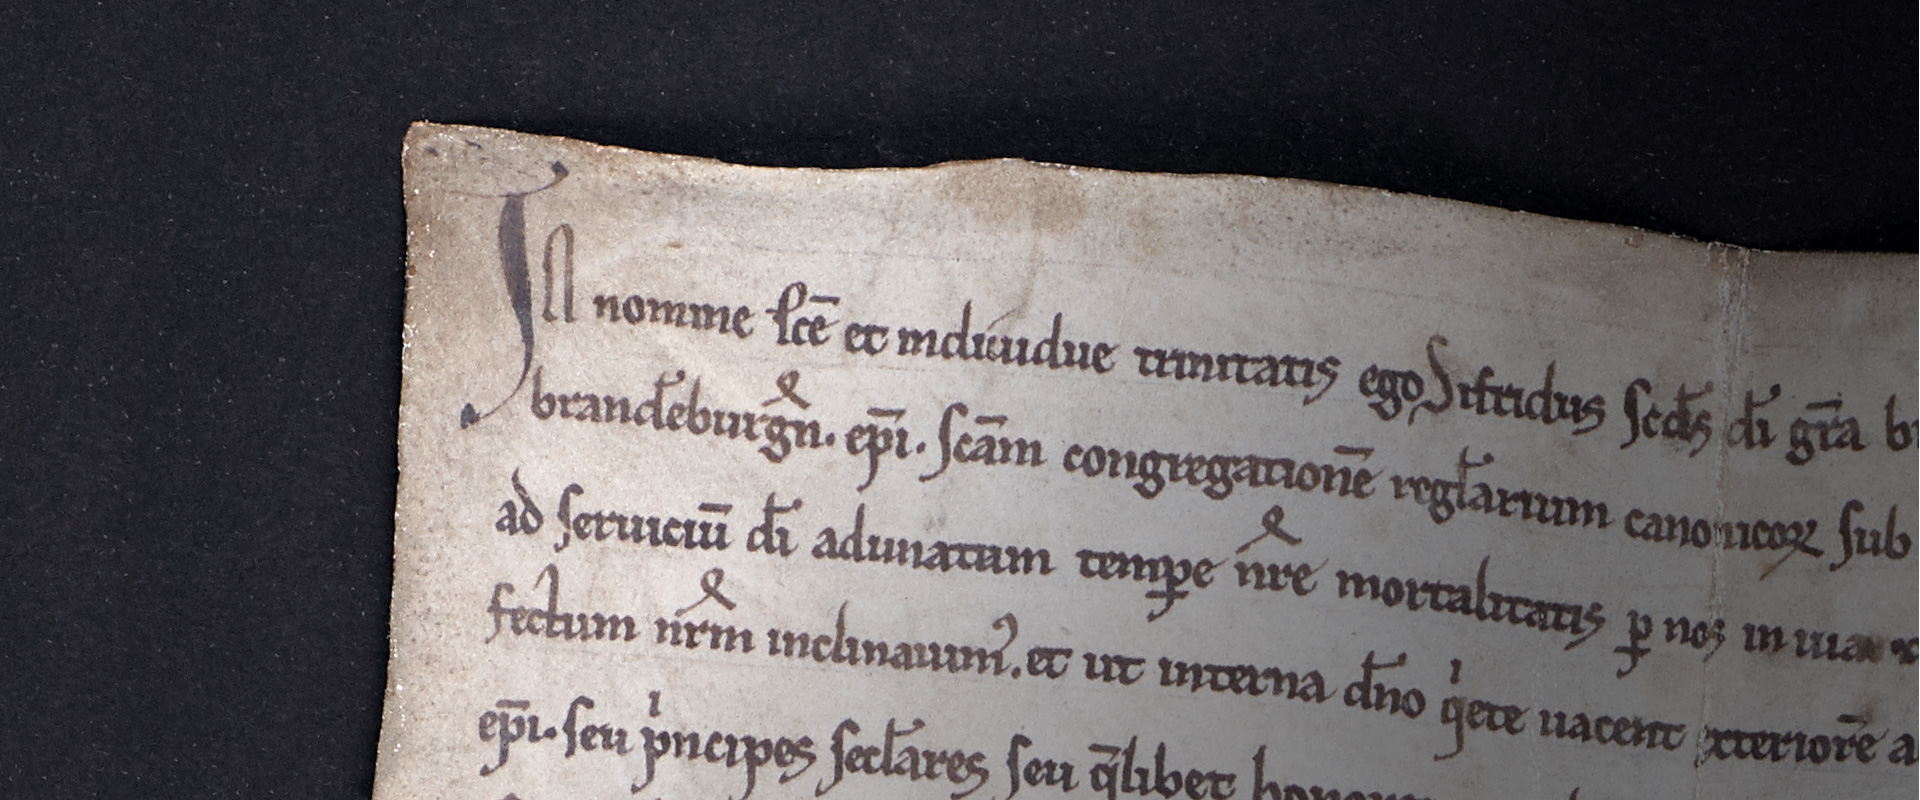 IN nomine sc̄e et indiuidue trinitatis ego Sifridus scd̄s d̄i gr̄a
brand̄eburgn̄. ep̄i. sc̄am congregationē regl̄arium canonicoꝝ sub
ad seruiciū d̄i adunatam temꝑe nr̄e mortalitatis ꝑ nos in uia
fectum nr̄m inclinauim᾿. et ut interna d̄no qͥete uacent exteriorē a
ep̄i. seu pͥncipes secl̄ares seu q̄libet